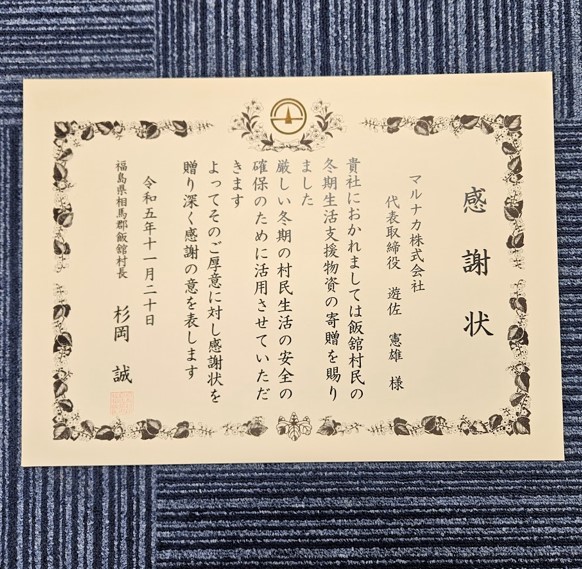 感謝状
マルナカ株式会社
代表取締役 遊佐 憲雄 様
貴社におかれましては飯舘村民の
冬期生活支援物資の寄贈を賜り
ました
厳しい冬期の村民生活の安全の
確保のために活用させていただ
きます
よってそのご厚意に対し感謝状を
贈り深く感謝の意を表します
令和五年十一月二十日
福島県相馬郡飯舘村長 杉岡 誠